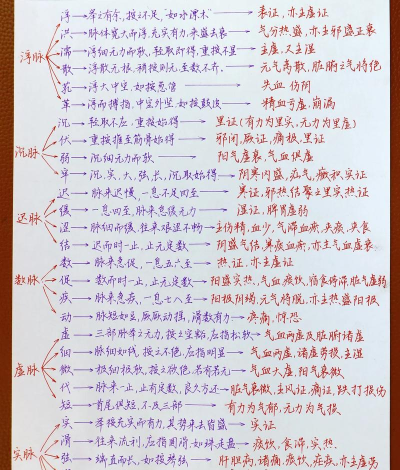 浮 → 举之有余,按之不足,如水漂木 → 表证,亦主虚证
洪 → 脉体宽大而浮,充实有力,来盛去衰 → 气分热盛,亦主邪盛正衰
濡 → 浮细无力而软,轻取即得,重按不显 → 主虚,又主湿
浮脉
散 → 浮散无根,稍按则无,至数不齐 → 元气离散,脏腑之气将绝
芤 → 浮大中空,如按葱管 → 失血 伤阴
革 → 浮而搏指,中空外坚,如按鼓皮 → 精血亏虚,崩漏
沉 → 轻取不应,重按始得 → 里证(有力为里实,无力为里虚)
伏 → 重按推至筋骨始得 → 邪闭,厥证,痛极,里证
沉脉
弱 → 沉细无力而软 → 阳气虚衰,气血俱虚
牢 → 沉,实,大,弦,长,沉取始得 → 阴寒内盛,疝气,癥积实证
迟 → 脉来迟慢,一息不足四至 → 寒证,邪热结聚之里实热证
缓 → 一息四至,脉来怠缓无力 → 湿证,脾胃虚弱
迟脉
涩 → 脉细而缓,往来艰涩不畅 → 主伤精,血少,气滞血瘀,夹痰,夹食
结 → 迟而时一止,止无定数 → 阴盛气结,寒痰血瘀,亦主气血虚衰
数 → 脉来急促,一息五六至 → 热证,亦主虚证
数脉
促 → 数而时一止,止无定数 → 阳盛实热,气血痰饮,宿食停滞,脏气虚弱
疾 → 脉来急疾,一息七八至 → 阳极阴竭,元气将脱,亦主热盛阳极
动 → 脉短如豆,厥厥动摇,滑数有力 → 疼痛,惊恐
虚 → 三部脉举之无力,按之空豁,应指松软 → 气血两虚及脏腑诸虚
细 → 脉细如线,按之不绝,应指明显 → 气血两虚,诸虚劳损,主湿
虚脉
微 → 极细极软,按之欲绝,若有若无 → 气血大虚,阳气衰微
代 → 脉来一止,止有定数,良久方还 → 脏气衰微,主风证,痛证,跌打损伤
短 → 首尾俱短,不及三部 → 有力为气郁,无力为气损
实 → 举按充实而有力,其势来去皆盛 → 实证
实脉
滑 → 往来流利,应指圆滑,如珠走盘 → 痰饮,食滞,实热
弦 → 端直而长,如按琴弦 → 肝胆病,诸痛,痰饮,在疾,亦主虚劳